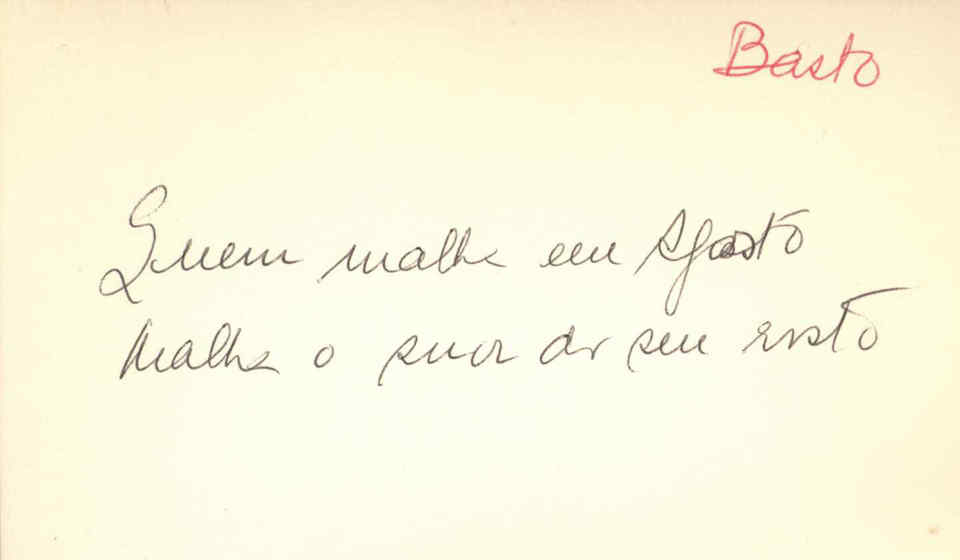 Basto
Quem malha em Agosto
Malha o suor do seu rosto